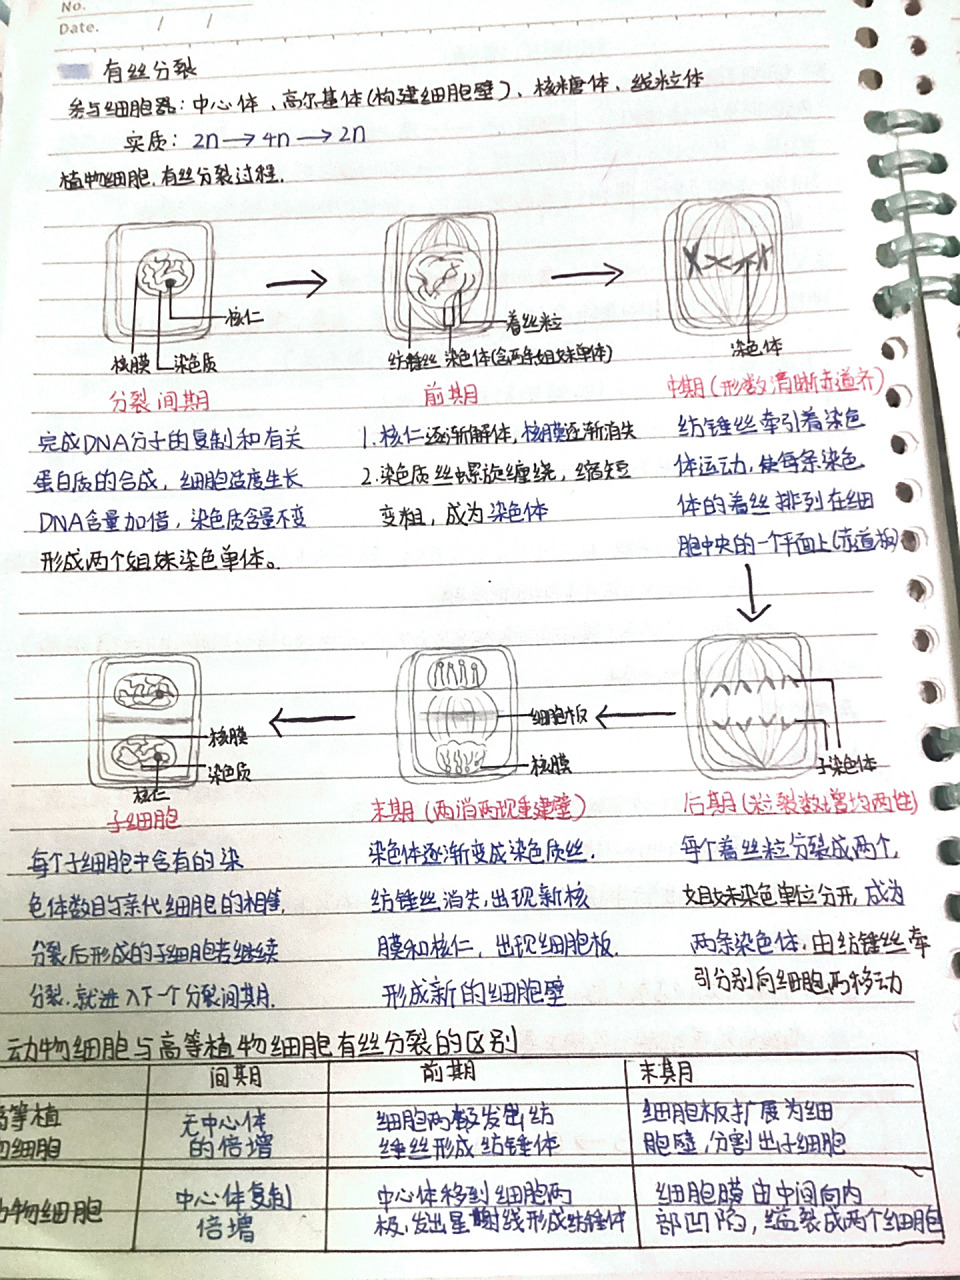 No.
Date. / /
有丝分裂
参与细胞器：中心体、高尔基体(构建细胞壁)、核糖体、线粒体
实质：2n→4n→2n
植物细胞.有丝分裂过程.
核仁
核膜 染色质
着丝粒
纺锤丝 染色体(含两条姐妹单体)
染色体
分裂间期
前期
中期(形数清晰赤道齐)
完成DNA分子的复制和有关
蛋白质的合成，细胞适度生长
DNA含量加倍，染色质含量不变
形成两个姐妹染色单体。
1.核仁逐渐解体，核膜逐渐消失
2.染色质丝螺旋缠绕，缩短
变粗，成为染色体
纺锤丝牵引着染色
体运动，使每条染色
体的着丝排列在细
胞中央的一个平面上(赤道板)
核膜
染色质
核仁
细胞板
核膜
子染色体
子细胞
末期(两消两现重建壁)
后期(粒裂数增均两性)
每个子细胞中含有的染
色体数目与亲代细胞的相等.
分裂后形成的子细胞若继续
分裂.就进入下一个分裂间期.
染色体逐渐变成染色质丝.
纺锤丝消失,出现新核
膜和核仁，出现细胞板.
形成新的细胞壁
每个着丝粒分裂成两个，
姐妹染色单位分开，成为
两条染色体，由纺锤丝牵
引分别向细胞两移动
动物细胞与高等植物细胞有丝分裂的区别
间期 前期 末期
高等植
物细胞
无中心体
的倍增
细胞两极发出纺
锤丝形成纺锤体
细胞板扩展为细
胞壁，分割出子细胞
动物细胞
中心体复制
倍增
中心体移到细胞两
极，发出星射线形成纺锤体
细胞膜由中间向内
部凹陷，缢裂成两个细胞